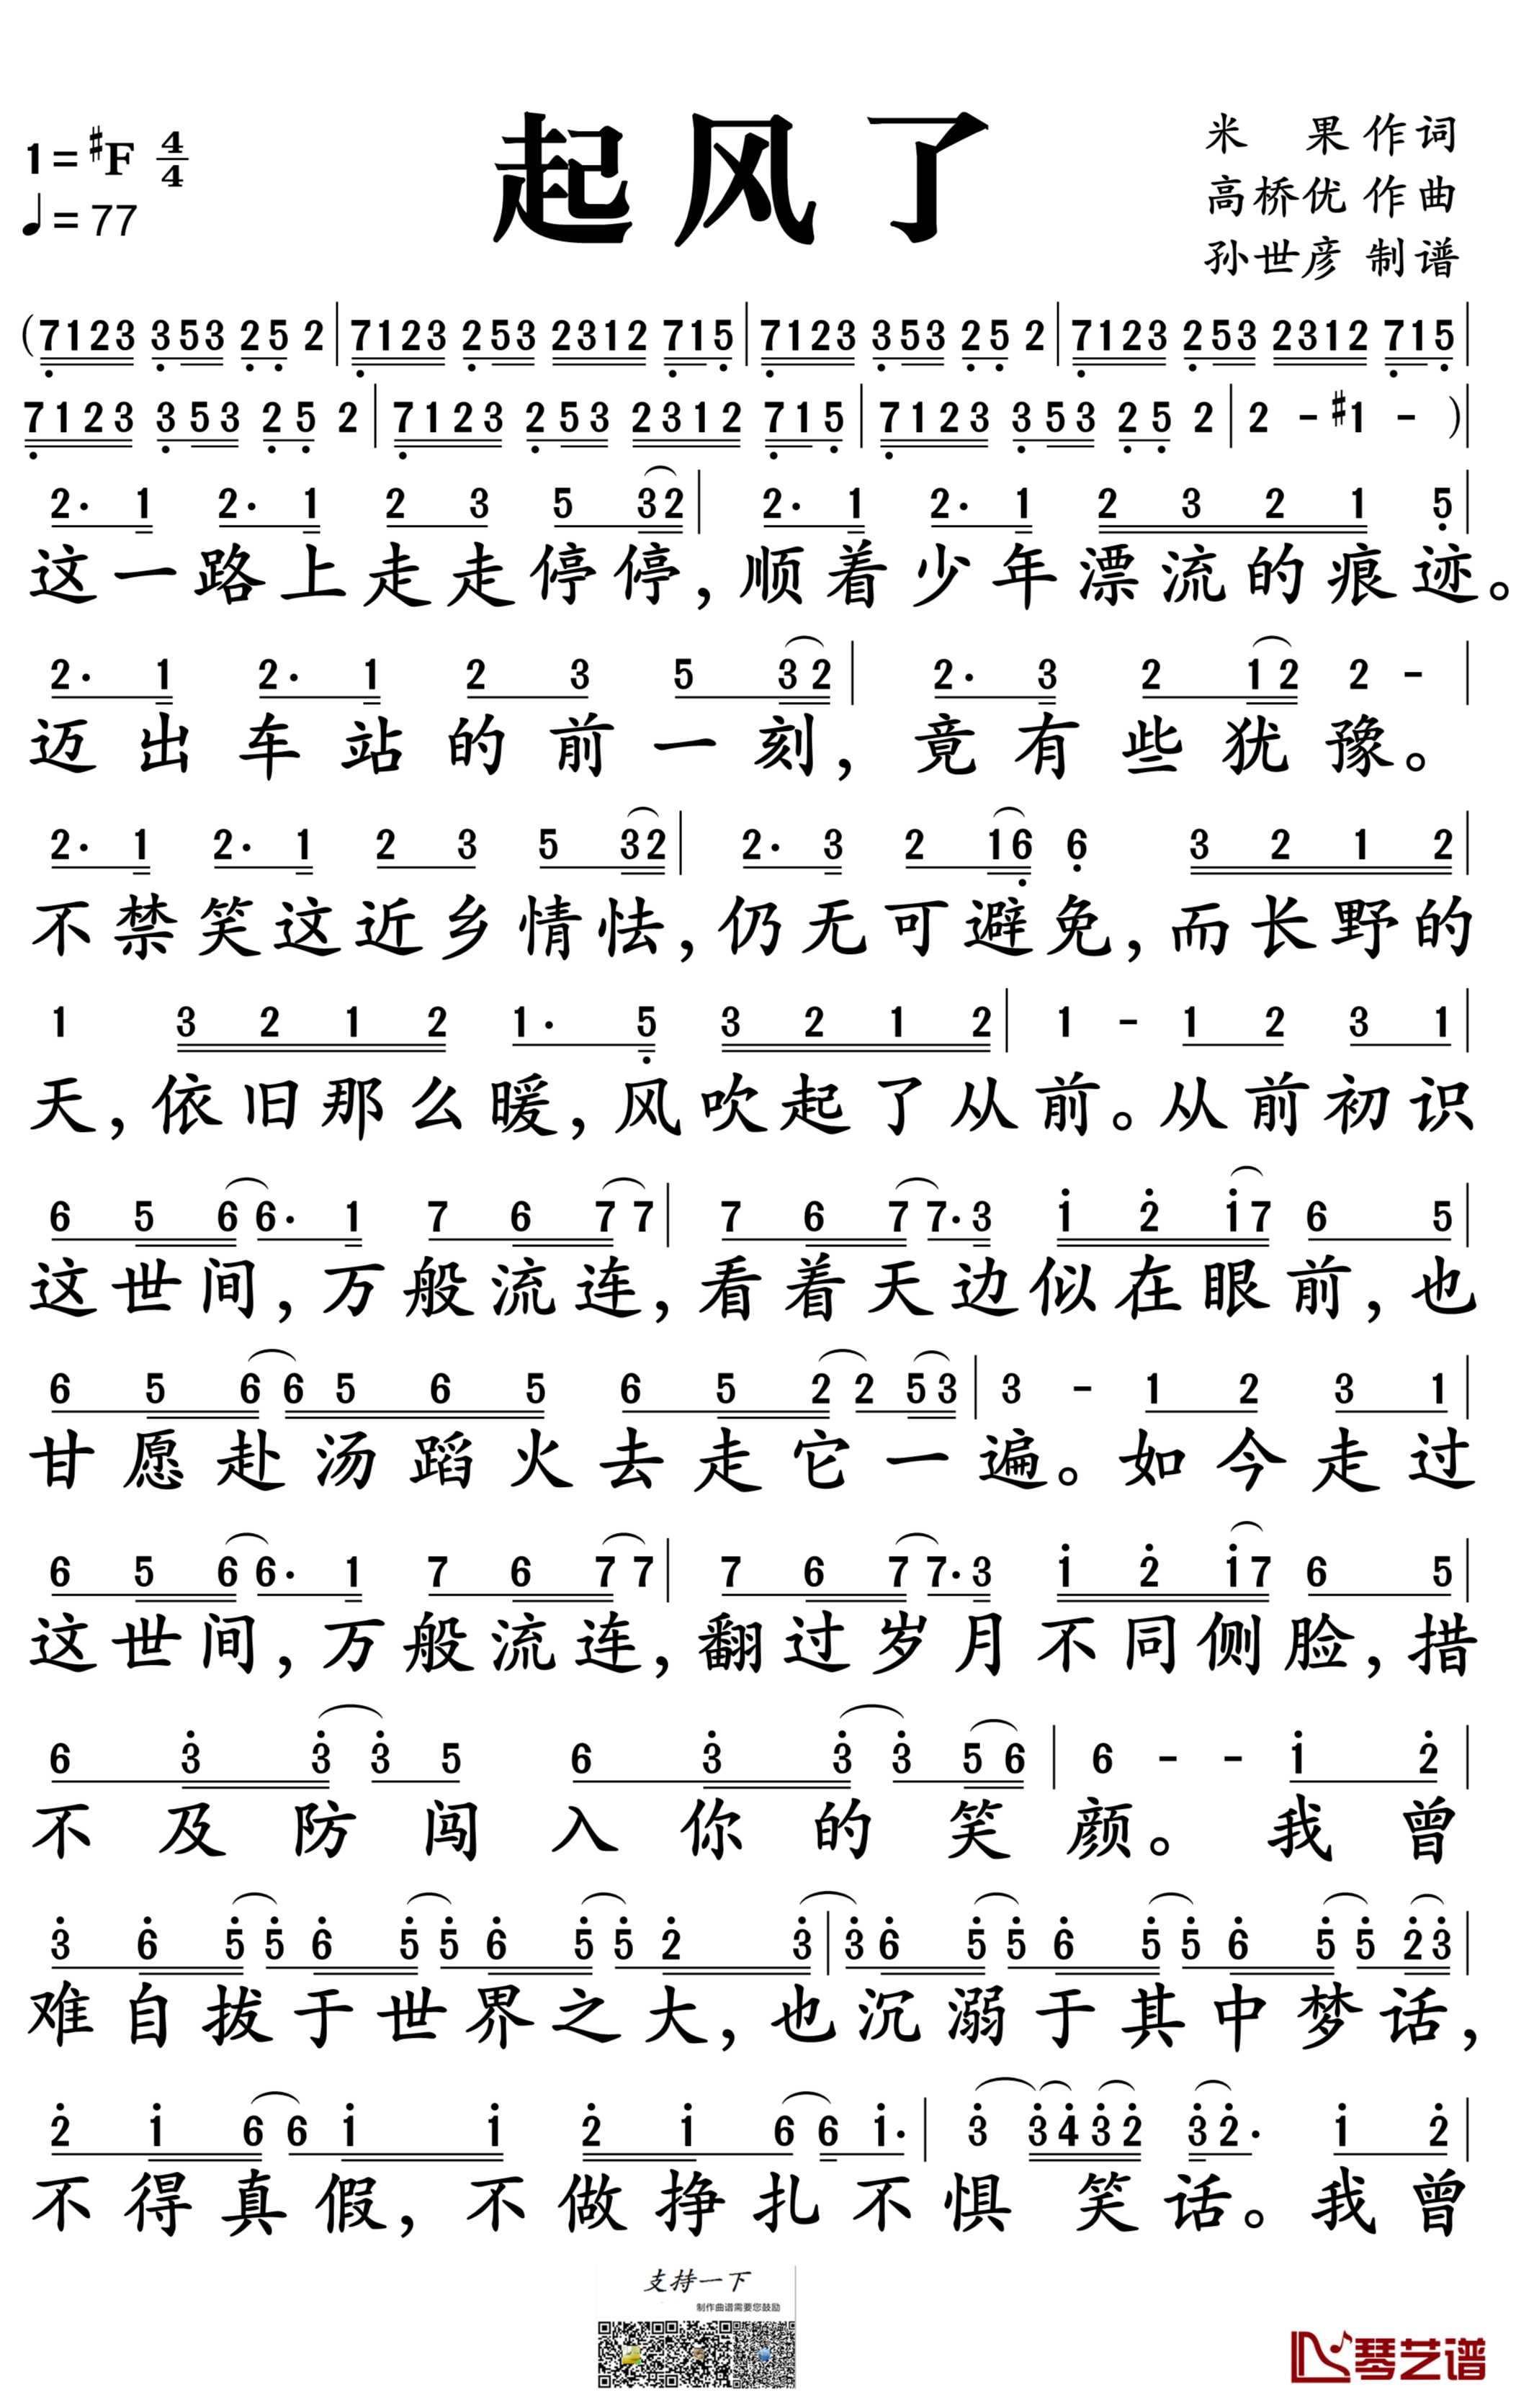 起风了
1=#F 4/4
♩=77
米 果 作词
高桥优 作曲
孙世彦 制谱
(7123 353 25 2|7123 253 2312 715|7123 353 25 2|7123 253 2312 715|
7123 353 25 2|7123 253 2312 715|7123 353 25 2|2 - #1 - )|
2· 1 2· 1 2 3 5 32| 2· 1 2· 1 2 3 2 1 5|
这一路上走走停停,顺着少年漂流的痕迹。
2· 1 2· 1 2 3 5 32| 2· 3 2 12 2 - |
迈出车站的前一刻,竟有些犹豫。
2· 1 2· 1 2 3 5 32| 2· 3 2 16 6 3 2 1 2|
不禁笑这近乡情怯,仍无可避免,而长野的
1 3 2 1 2 1· 5 3 2 1 2| 1 - 1 2 3 1|
天,依旧那么暖,风吹起了从前。从前初识
6 5 66· 1 7 6 77| 7 6 77·3 1 2 17 6 5|
这世间,万般流连,看着天边似在眼前,也
6 5 66 5 6 5 6 5 22 53| 3 - 1 2 3 1|
甘愿赴汤蹈火去走它一遍。如今走过
6 5 66· 1 7 6 77| 7 6 77·3 1 2 17 6 5|
这世间,万般流连,翻过岁月不同侧脸,措
6 3 33 5 6 3 33 56| 6 - - 1 2|
不及防闯入你的笑颜。我曾
3 6 55 6 55 6 55 2 3|36 55 6 55 6 55 23|
难自拔于世界之大,也沉溺于其中梦话,
2 1 66 1 1 2 1 66 1·| 3 3432 32· 1 2|
不得真假,不做挣扎不惧笑话。我曾
支持一下
制作曲谱需要您鼓励
琴艺谱